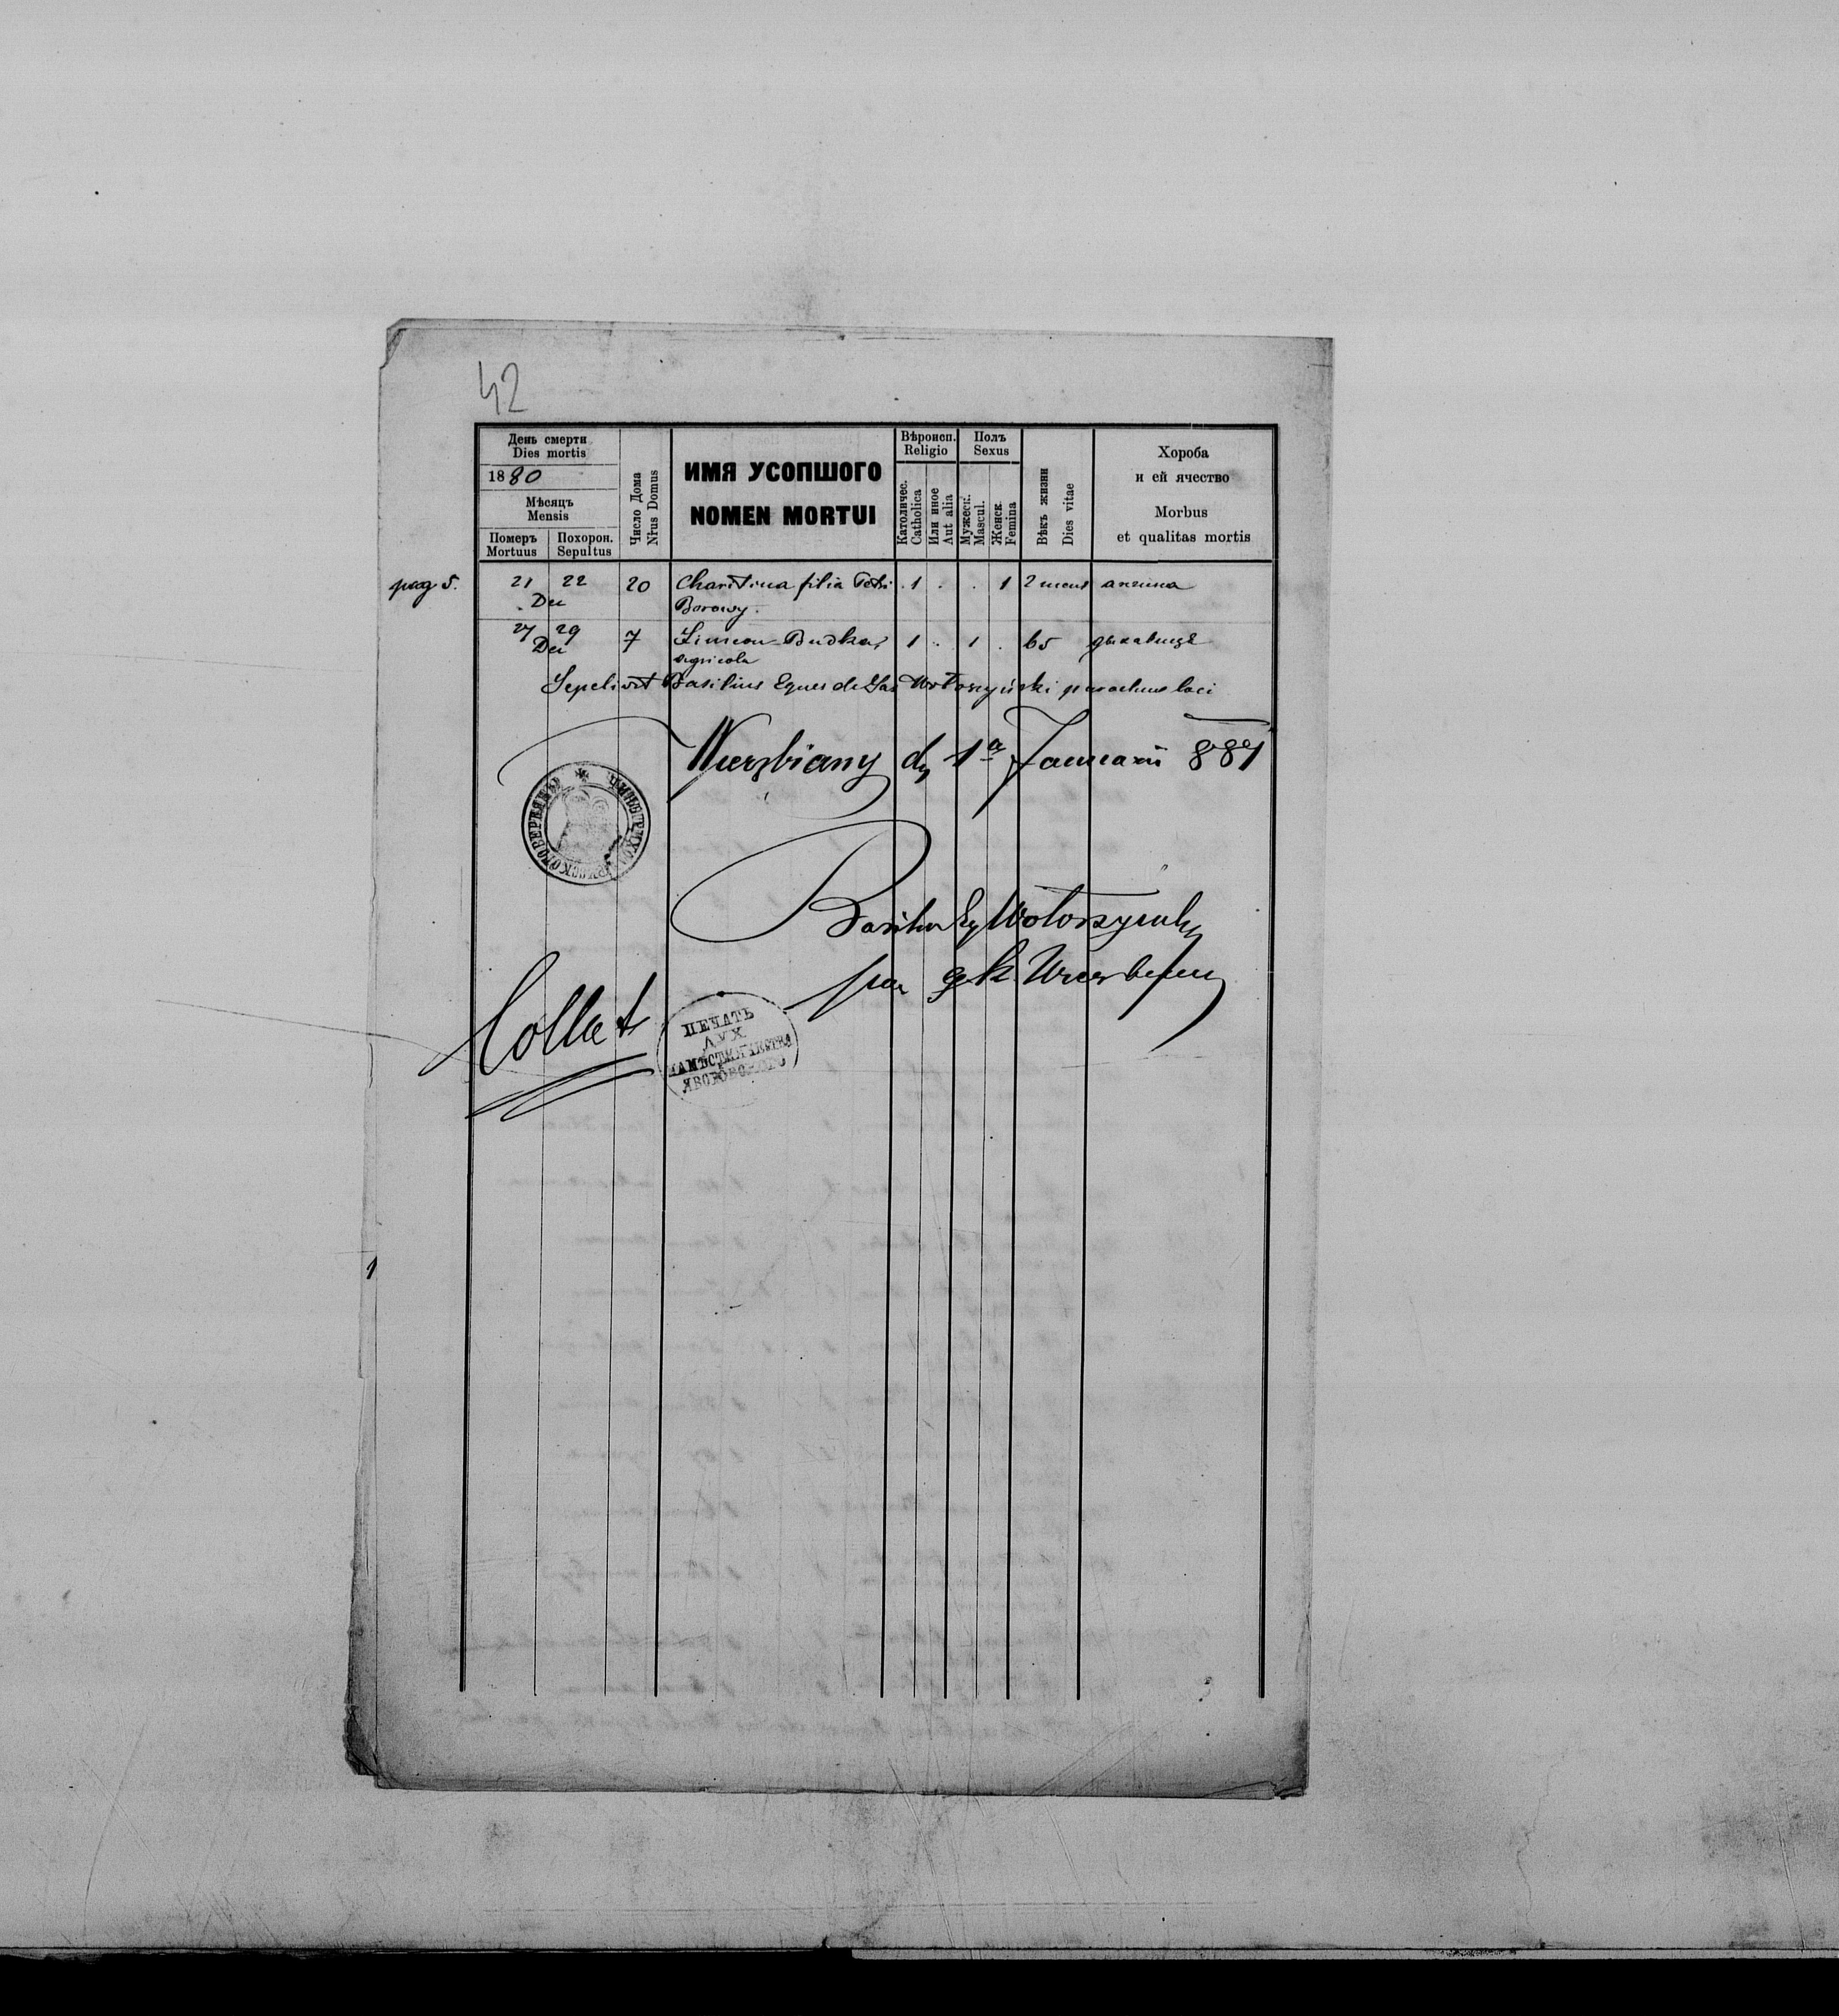 42
День смерти
Dies mortis
1880
Мѣсяцъ
Mensis
Померъ Mortuus
Похорон. Sepultus
Число Дома
Nrus Domus
ИМЯ УСОПШОГО
NOMEN MORTUI
Вѣроисп.
Religio
Католичес.
Catholica
Или иное
Aut alia
Полъ
Sexus
Мужеск.
Mascul.
Женск.
Femina
Вѣкъ жизни
Dies vitae
Хороба
и ей ячество
Morbus
et qualitas mortis
pag 5. 21 22 20 Charitina filia Petri . 1 . . 1 2 mens
Dec Borowy.
27 29 7 Simeon Budka, 1 . 1 . 65 дыхавица
Dec agricola
Sepelivit Basilius Eques de Sas Wołoszyński parochus loci
Wierzbiany d 1a Januarii 881
Wołoszyński
par gk
Collat
ПЕЧАТЬ
ДУХ
НАМѢСТНИЧЕСТВА
ЯВОРОВСКОГО
1